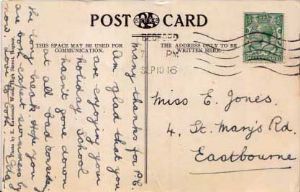 POST CARD
THIS SPACE MAY BE USED FOR
COMMUNICATION.
THE ADDRESS ONLY TO BE
WRITTEN HERE.
BEDFORD
SP 10 16
Many thanks for P.C.
Am glad that you
are enjoying your
holiday. School
hasn't gone down
at all bad considering
the long break. Hope you
are
Miss E. Jones.
4, St. Mary's Rd.
Eastbourne